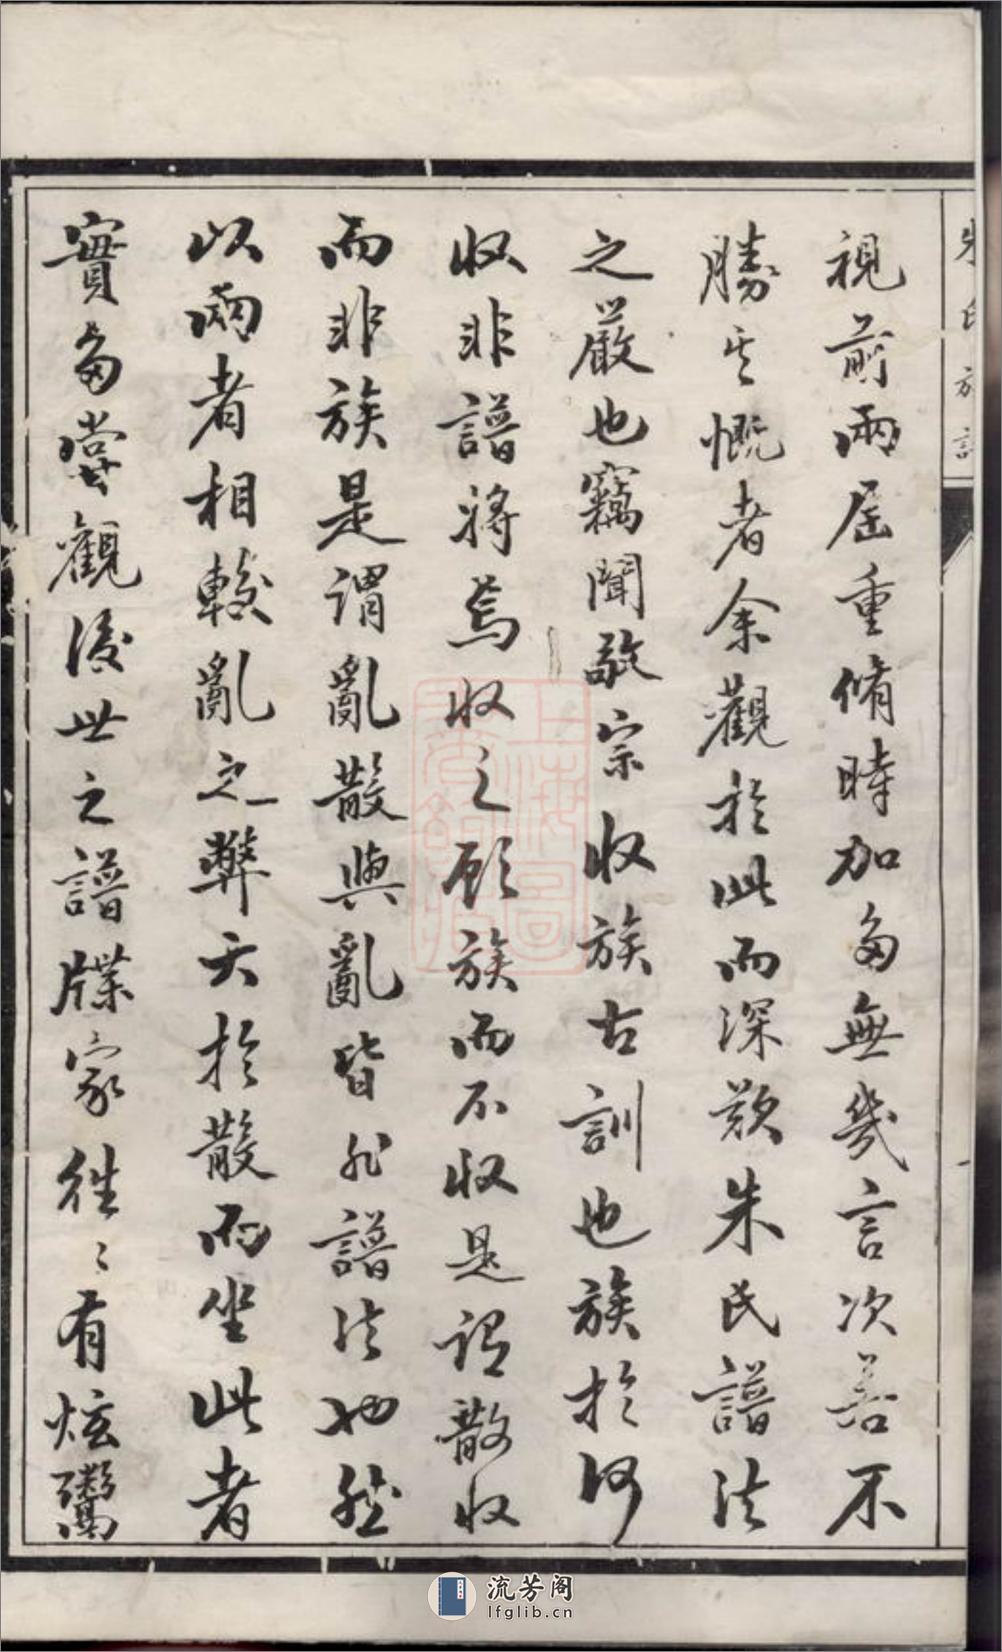 朱氏族譜
視前兩屆重脩時加多無幾言次若不
勝其慨者余觀於此而深歎朱氏譜法
之嚴也竊聞敬宗收族古訓也族於何
收非譜將焉收之顧族而不收是謂散收
而非族是謂亂散與亂皆非譜法也然
以兩者相較亂之弊大於散而坐此者
實多嘗觀後世之譜牒家往往有炫鬻
流芳阁
lfglib.cn